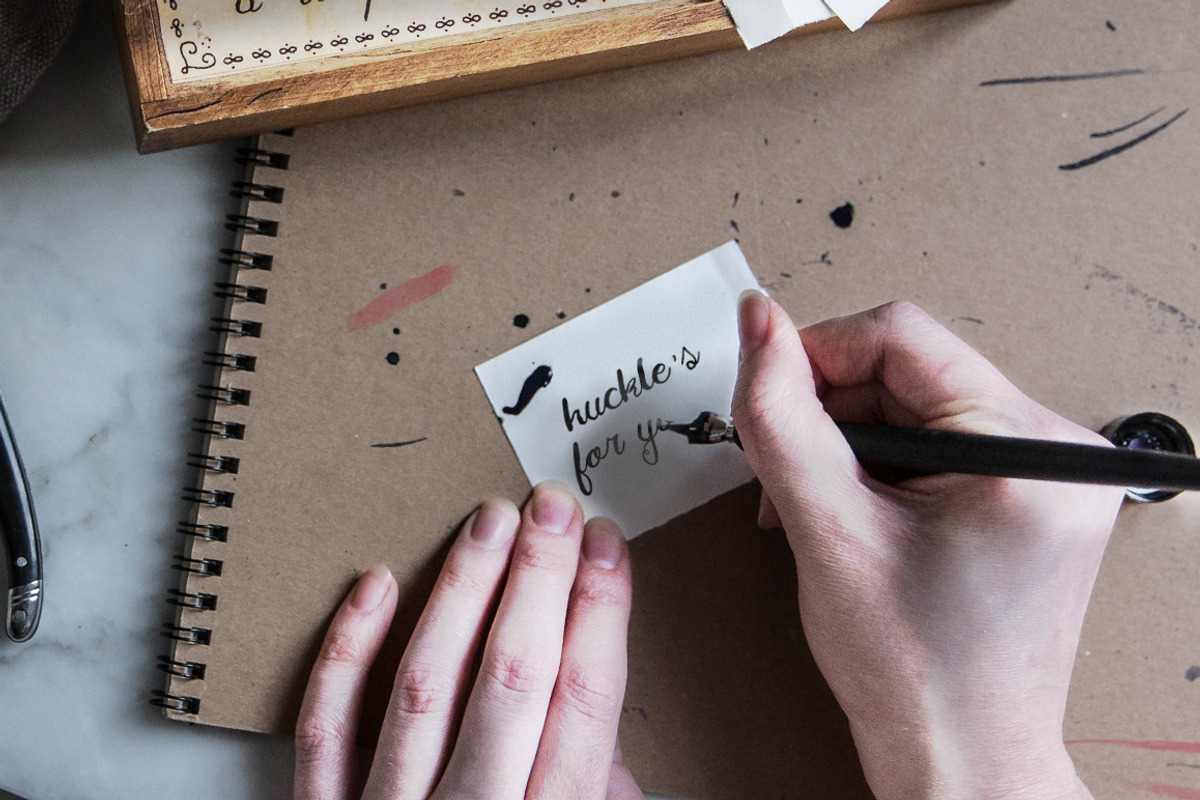 huckle's
for yo